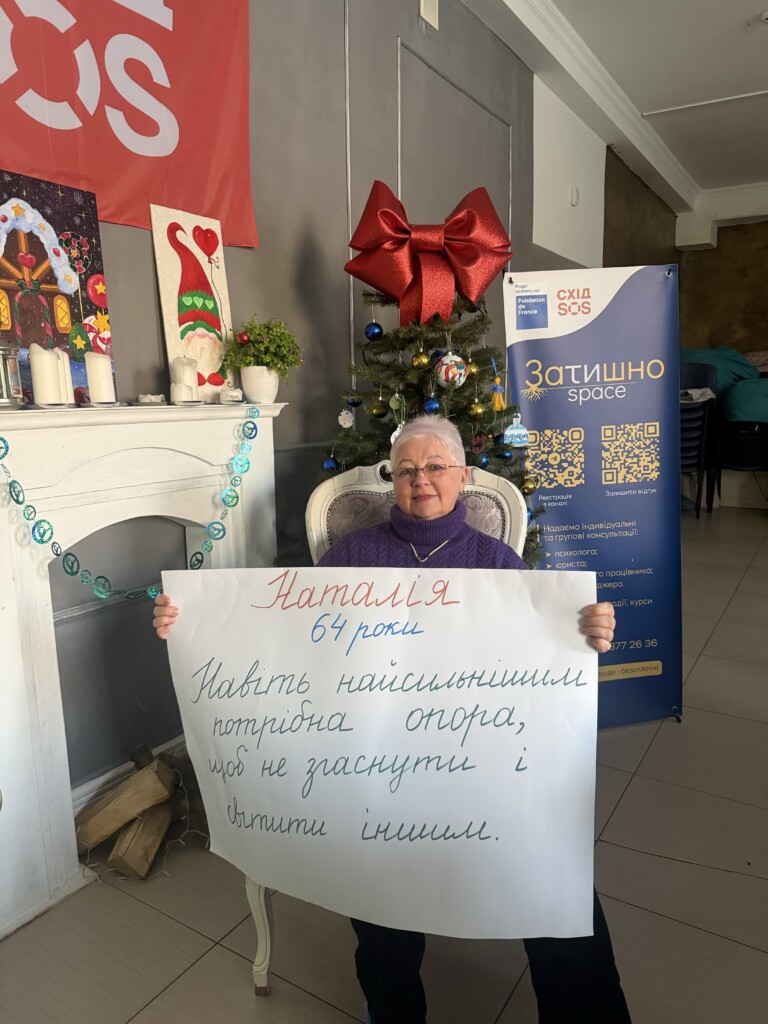 SOS
Projet soutenu par
Fondation
de
France
СХІД
SOS
Затишно
space
Реєстрація
в каналі
Залишити відгук
Надаємо індивідуальні
та групові консультації:
психолога;
юриста;
працівника;
877 26 36
Наталія
64 роки
Навіть найсильнішим
потрібна опора,
щоб не згаснути і
світити іншим.